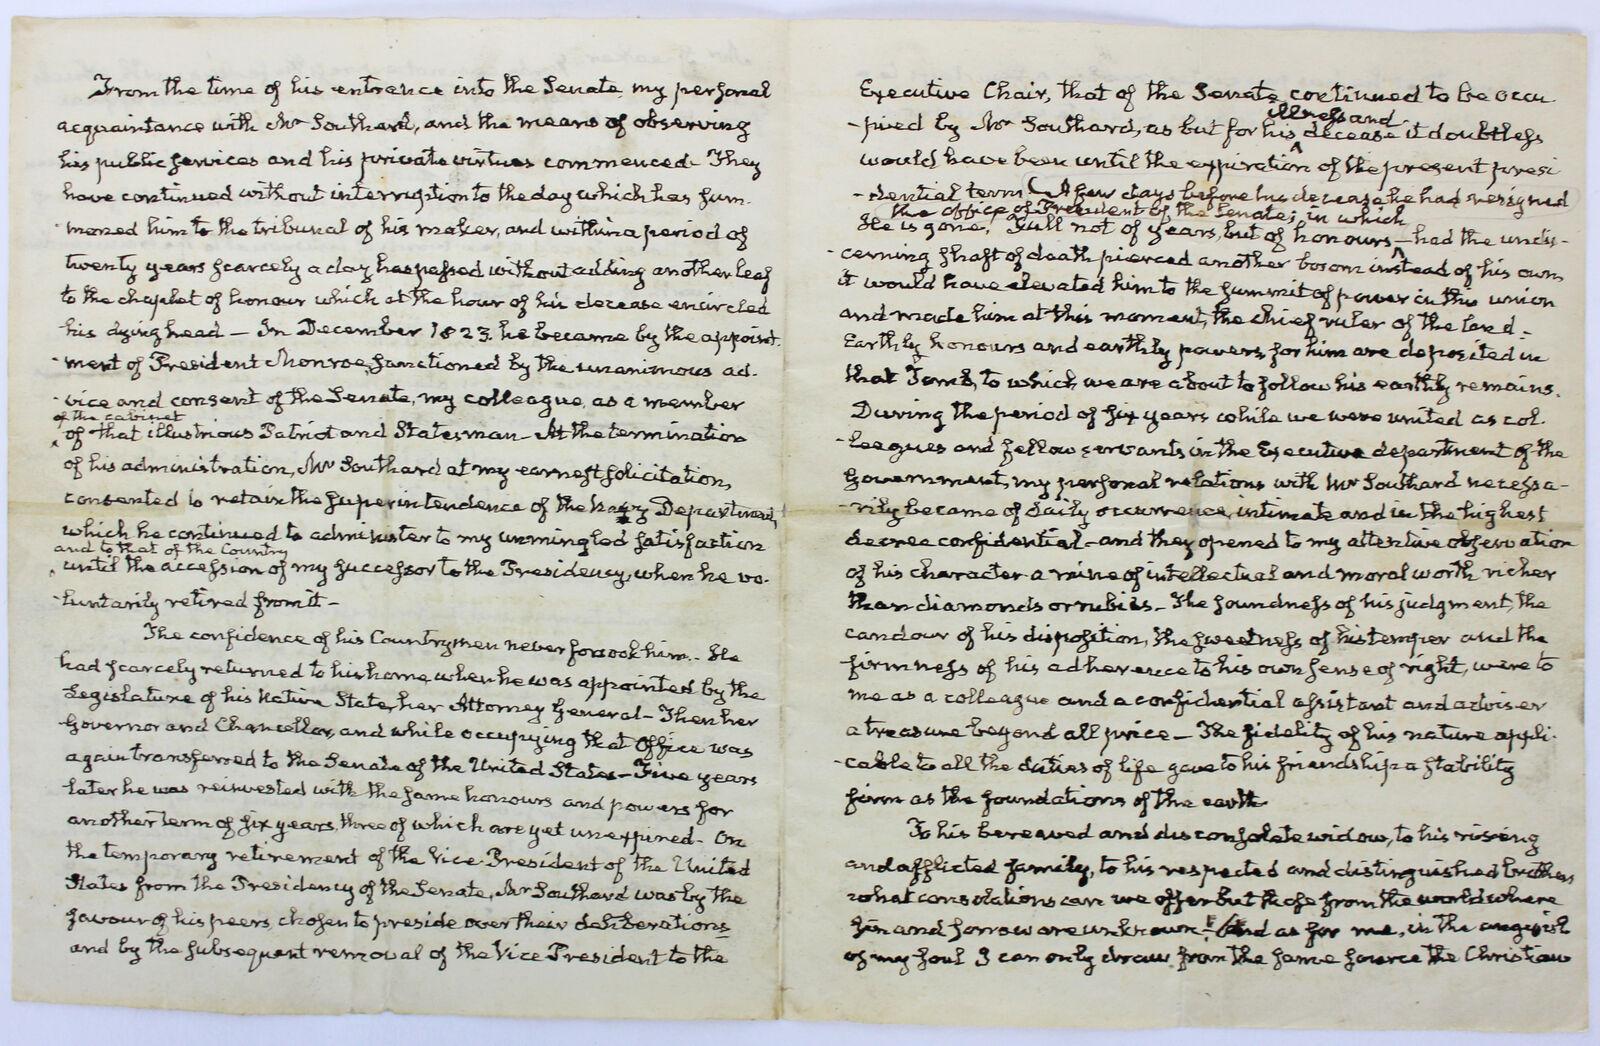 From the time of his entrence into the Senate, my personal
acquaintance with Mr Southard, and the means of observing
his public services and his private virtues commenced - They
have continued without interruption to the day which has sum-
-moned him to the tribunal of his maker, and within a period of
twenty years scarcely a day has passed without adding another leaf
to the chaplet of honour which at the hour of his decease encircled
his dying head — In December 1823. he became by the appoint-
-ment of President Monroe, sanctioned by the unanimous ad-
-vice and consent of the Senate, my colleague, as a member
of the cabinet
of that illustrious Patriot and Statesman - At the termination
of his administration, Mr Southard at my earnest solicitation,
consented to retain the superintendence of the Navy Department,
which he continued to administer to my unmingled satisfaction
and to that of the Country
until the accession of my successor to the Presidency, when he vo-
-luntarily retired from it -
The confidence of his Countrymen never forsook him. - He
had scarcely returned to his home when he was appointed by the
Legislature of his Native State, her Attorney General - Then her
Governor and Chancellor, and while occupying that Office was
again transferred to the Senate of the United States - Five years
later he was reinvested with the same honours and powers for
another term of six years, three of which are yet unexpired - On
the temporary retirement of the Vice President of the United
States from the Presidency of the Senate, Mr Southard was by the
favour of his peers chosen to preside over their deliberations
and by the subsequent removal of the Vice President to the
Executive Chair, that of the Senate continued to be occu-
illness and
-pied by Mr Southard, as but for his decease it doubtless
would have been until the expiration of the present presi-
-dential term (A few days before his decease he had resigned
the office of President of the Senate; in which
He is gone, Full not of years, but of honours - had the undis-
-cerning shaft of death pierced another bosom instead of his own
it would have elevated him to the summit of power in this union
and made him at this moment, the chief ruler of the land -
Earthly honours and earthly powers, for him are deposited in
that Tomb, to which we are about to follow his earthly remains.
During the period of six years while we were united as col-
-leagues and fellow servants in the Executive department of the
Government, my personal relations with Mr Southard necessa-
-rily became of daily occurrence, intimate and in the highest
degree confidential - and they opened to my attentive observation
of his character a mine of intellectual and moral worth richer
than diamonds or rubies - The soundness of his judgment, the
candour of his disposition, the sweetness of his temper and the
firmness of his adherence to his own sense of right, were to
me as a colleague and a confidential assistant and adviser
a treasure beyond all price - The fidelity of his nature appli-
-cable to all the duties of life gave to his friendship a stability
firm as the foundations of the earth
To his bereaved and disconsolate widow, to his rising
and afflicted family, to his respected and distinguished brothers
what consolations can we offer but those from the world where
sin and sorrow are unknown! And as for me, in the anguish
of my soul I can only draw from the same source the Christian